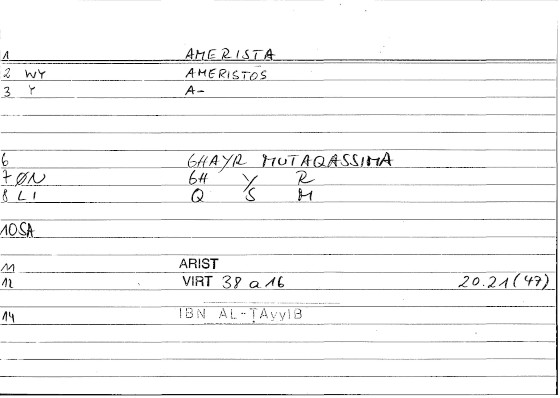 1 AMERISTA
2 WY AMERISTOS
3 Y A-
6 GHAYR MUTAQASSIMA
7 ØN GH Y R
8 LI Q S M
10 SA
11 ARIST
12 VIRT 38 a 16 20.21(47)
14 IBN AL-ṬAyyIB